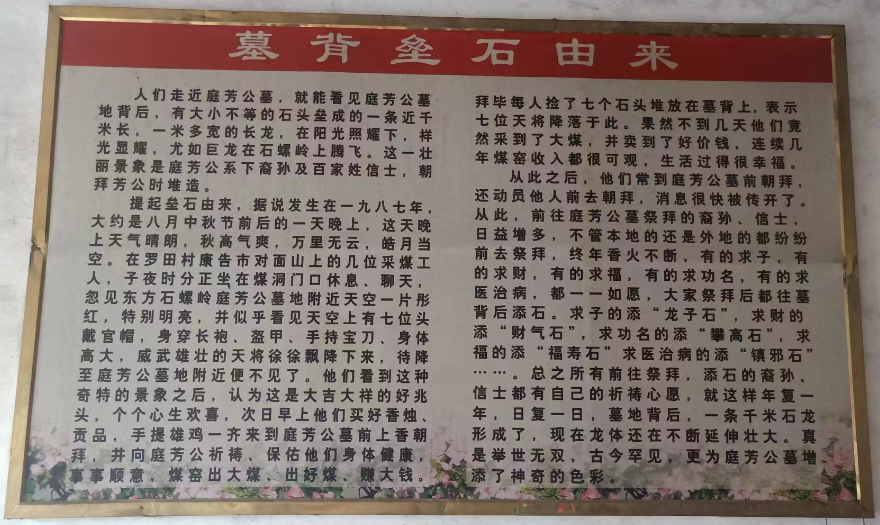 墓背垒石由来
人们走近庭芳公墓，就能看见庭芳公墓
地背后，有大小不等的石头垒成的一条近千
米长，一米多宽的长龙，在阳光照耀下，祥
光显耀，尤如巨龙在石螺岭上腾飞。这一壮
丽景象是庭芳公系下裔孙及百家姓信士，朝
拜芳公时堆造。
提起垒石由来，据说发生在一九八七年，
大约是八月中秋节前后的一天晚上，这天晚
上天气晴朗，秋高气爽，万里无云，皓月当
空。在罗田村康告市对面山上的几位采煤工
人，子夜时分正坐在煤洞门口休息、聊天，
忽见东方石螺岭庭芳公墓地附近天空一片彤
红，特别明亮，并似乎看见天空上有七位头
戴官帽，身穿长袍、盔甲、手持宝刀、身体
高大，威武雄壮的天将徐徐飘降下来，待降
至庭芳公墓地附近便不见了。他们看到这种
奇特的景象之后，认为这是大吉大祥的好兆
头，个个心生欢喜，次日早上他们买好香烛、
贡品，手提雄鸡一齐来到庭芳公墓前上香朝
拜，并向庭芳公祈祷、保佑他们身体健康，
事事顺意，煤窑出大煤、出好煤、赚大钱。
拜毕每人捡了七个石头堆放在墓背上，表示
七位天将降落于此。果然不到几天他们竟
然采到了大煤，并卖到了好价钱，连续几
年煤窑收入都很可观，生活过得很幸福。
从此之后，他们常到庭芳公墓前朝拜，
还动员他人前去朝拜，消息很快被传开了。
从此，前往庭芳公墓祭拜的裔孙、信士，
日益增多，不管本地的还是外地的都纷纷
前去祭拜，终年香火不断，有的求子，有
的求财，有的求福，有的求功名，有的求
医治病，都一一如愿，大家祭拜后都往墓
背后添石。求子的添“龙子石”，求财的
添“财气石”，求功名的添“攀高石”，求
福的添“福寿石”求医治病的添“镇邪石”
……。总之所有前往祭拜，添石的裔孙、
信士都有自己的祈祷心愿，就这样年复一
年，日复一日，墓地背后，一条千米石龙
形成了，现在龙体还在不断延伸壮大。真
是举世无双，古今罕见，更为庭芳公墓增
添了神奇的色彩。